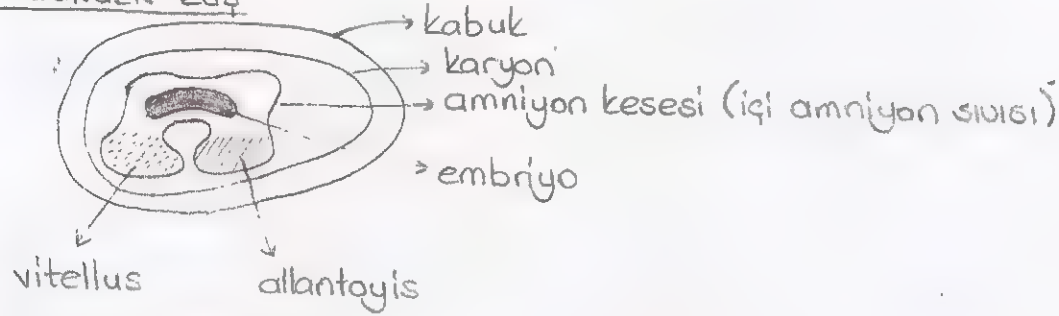 kabuk
karyon
amniyon kesesi (içi amniyon sıvısı)
embriyo
vitellus
allantoyis